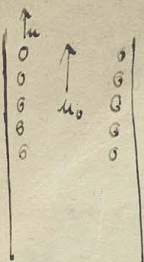 u
u₀